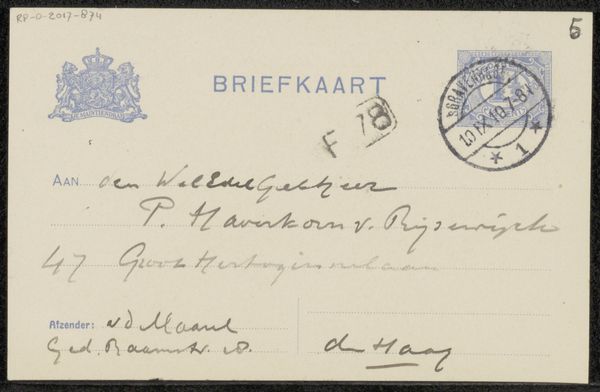 RP-O-2017-874
5
JE MAINTIENDRAI
BRIEFKAART
'SGRAVENHAGE
10.7-8V
1
F 78
AAN den WelEdelGeb Heer
P. Haverkorn v. Rijsewijk
47 Groot Hertoginnelaan
Afzender: v d Maarel
Ged. Raamstr. 28.
den Haag